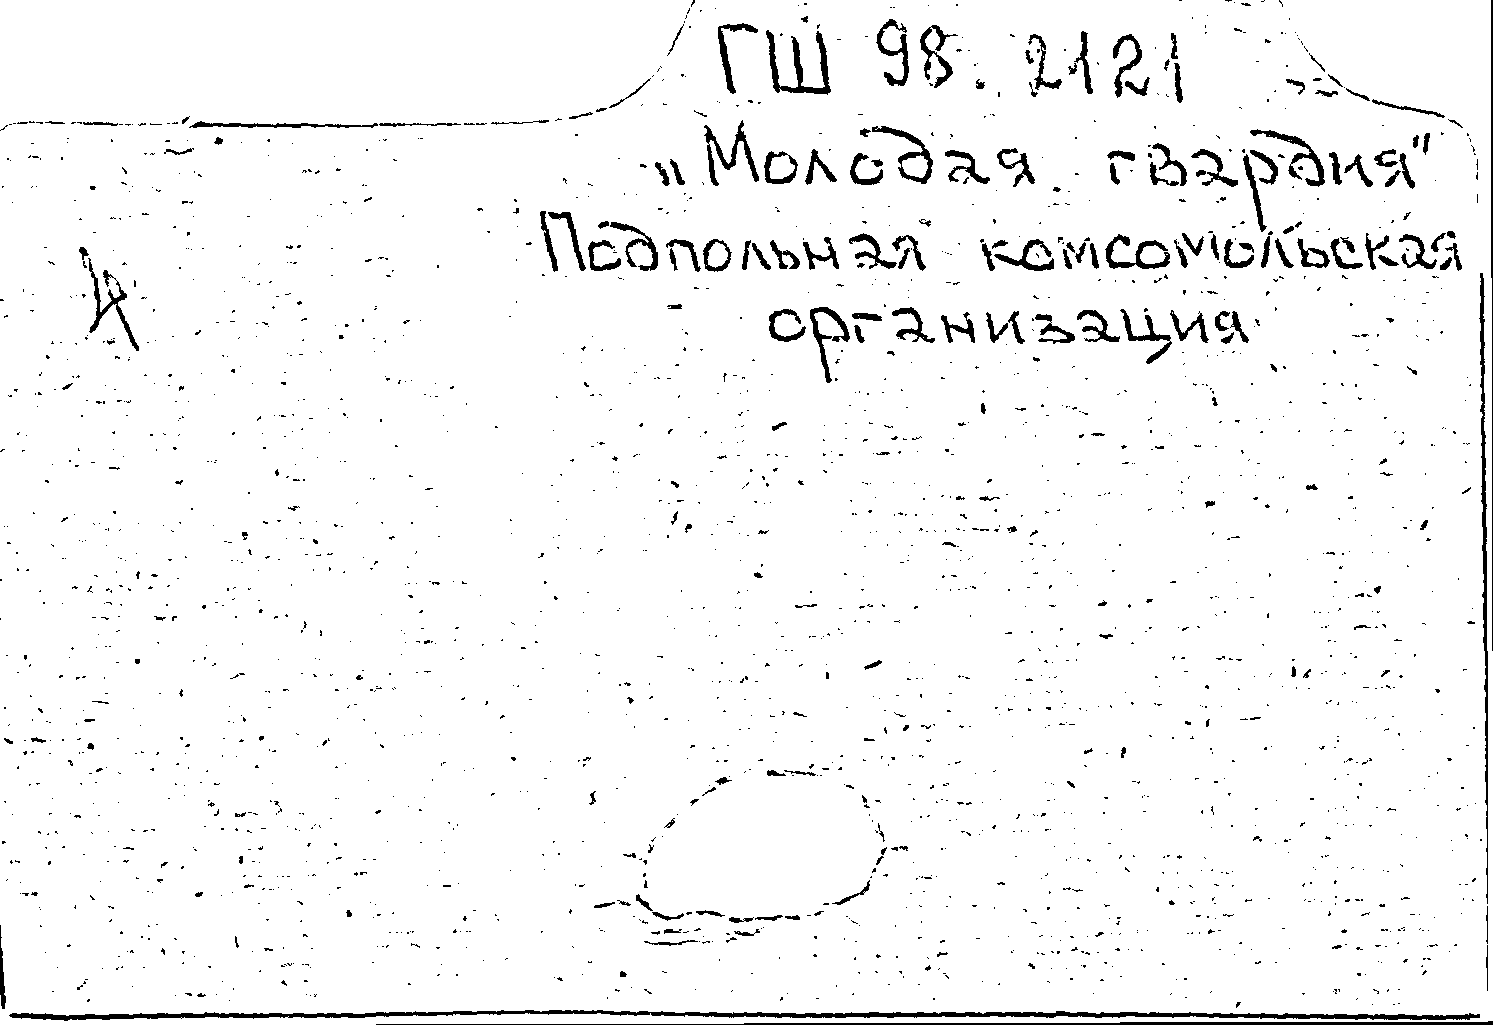 ГШ 98. 2121
„Молодая гвардия"
Подпольная комсомольская
организация